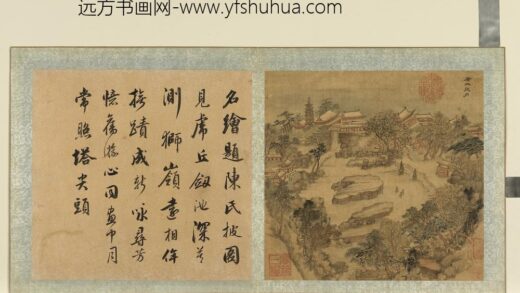 远方书画网-www.yfshuhua.com
名繪題陳氏披圖
見虎丘劒池深莫
測獅嶺遠相侔
蹟成新詠尋芳
憶舊游心同畫中月
常照塔尖頭